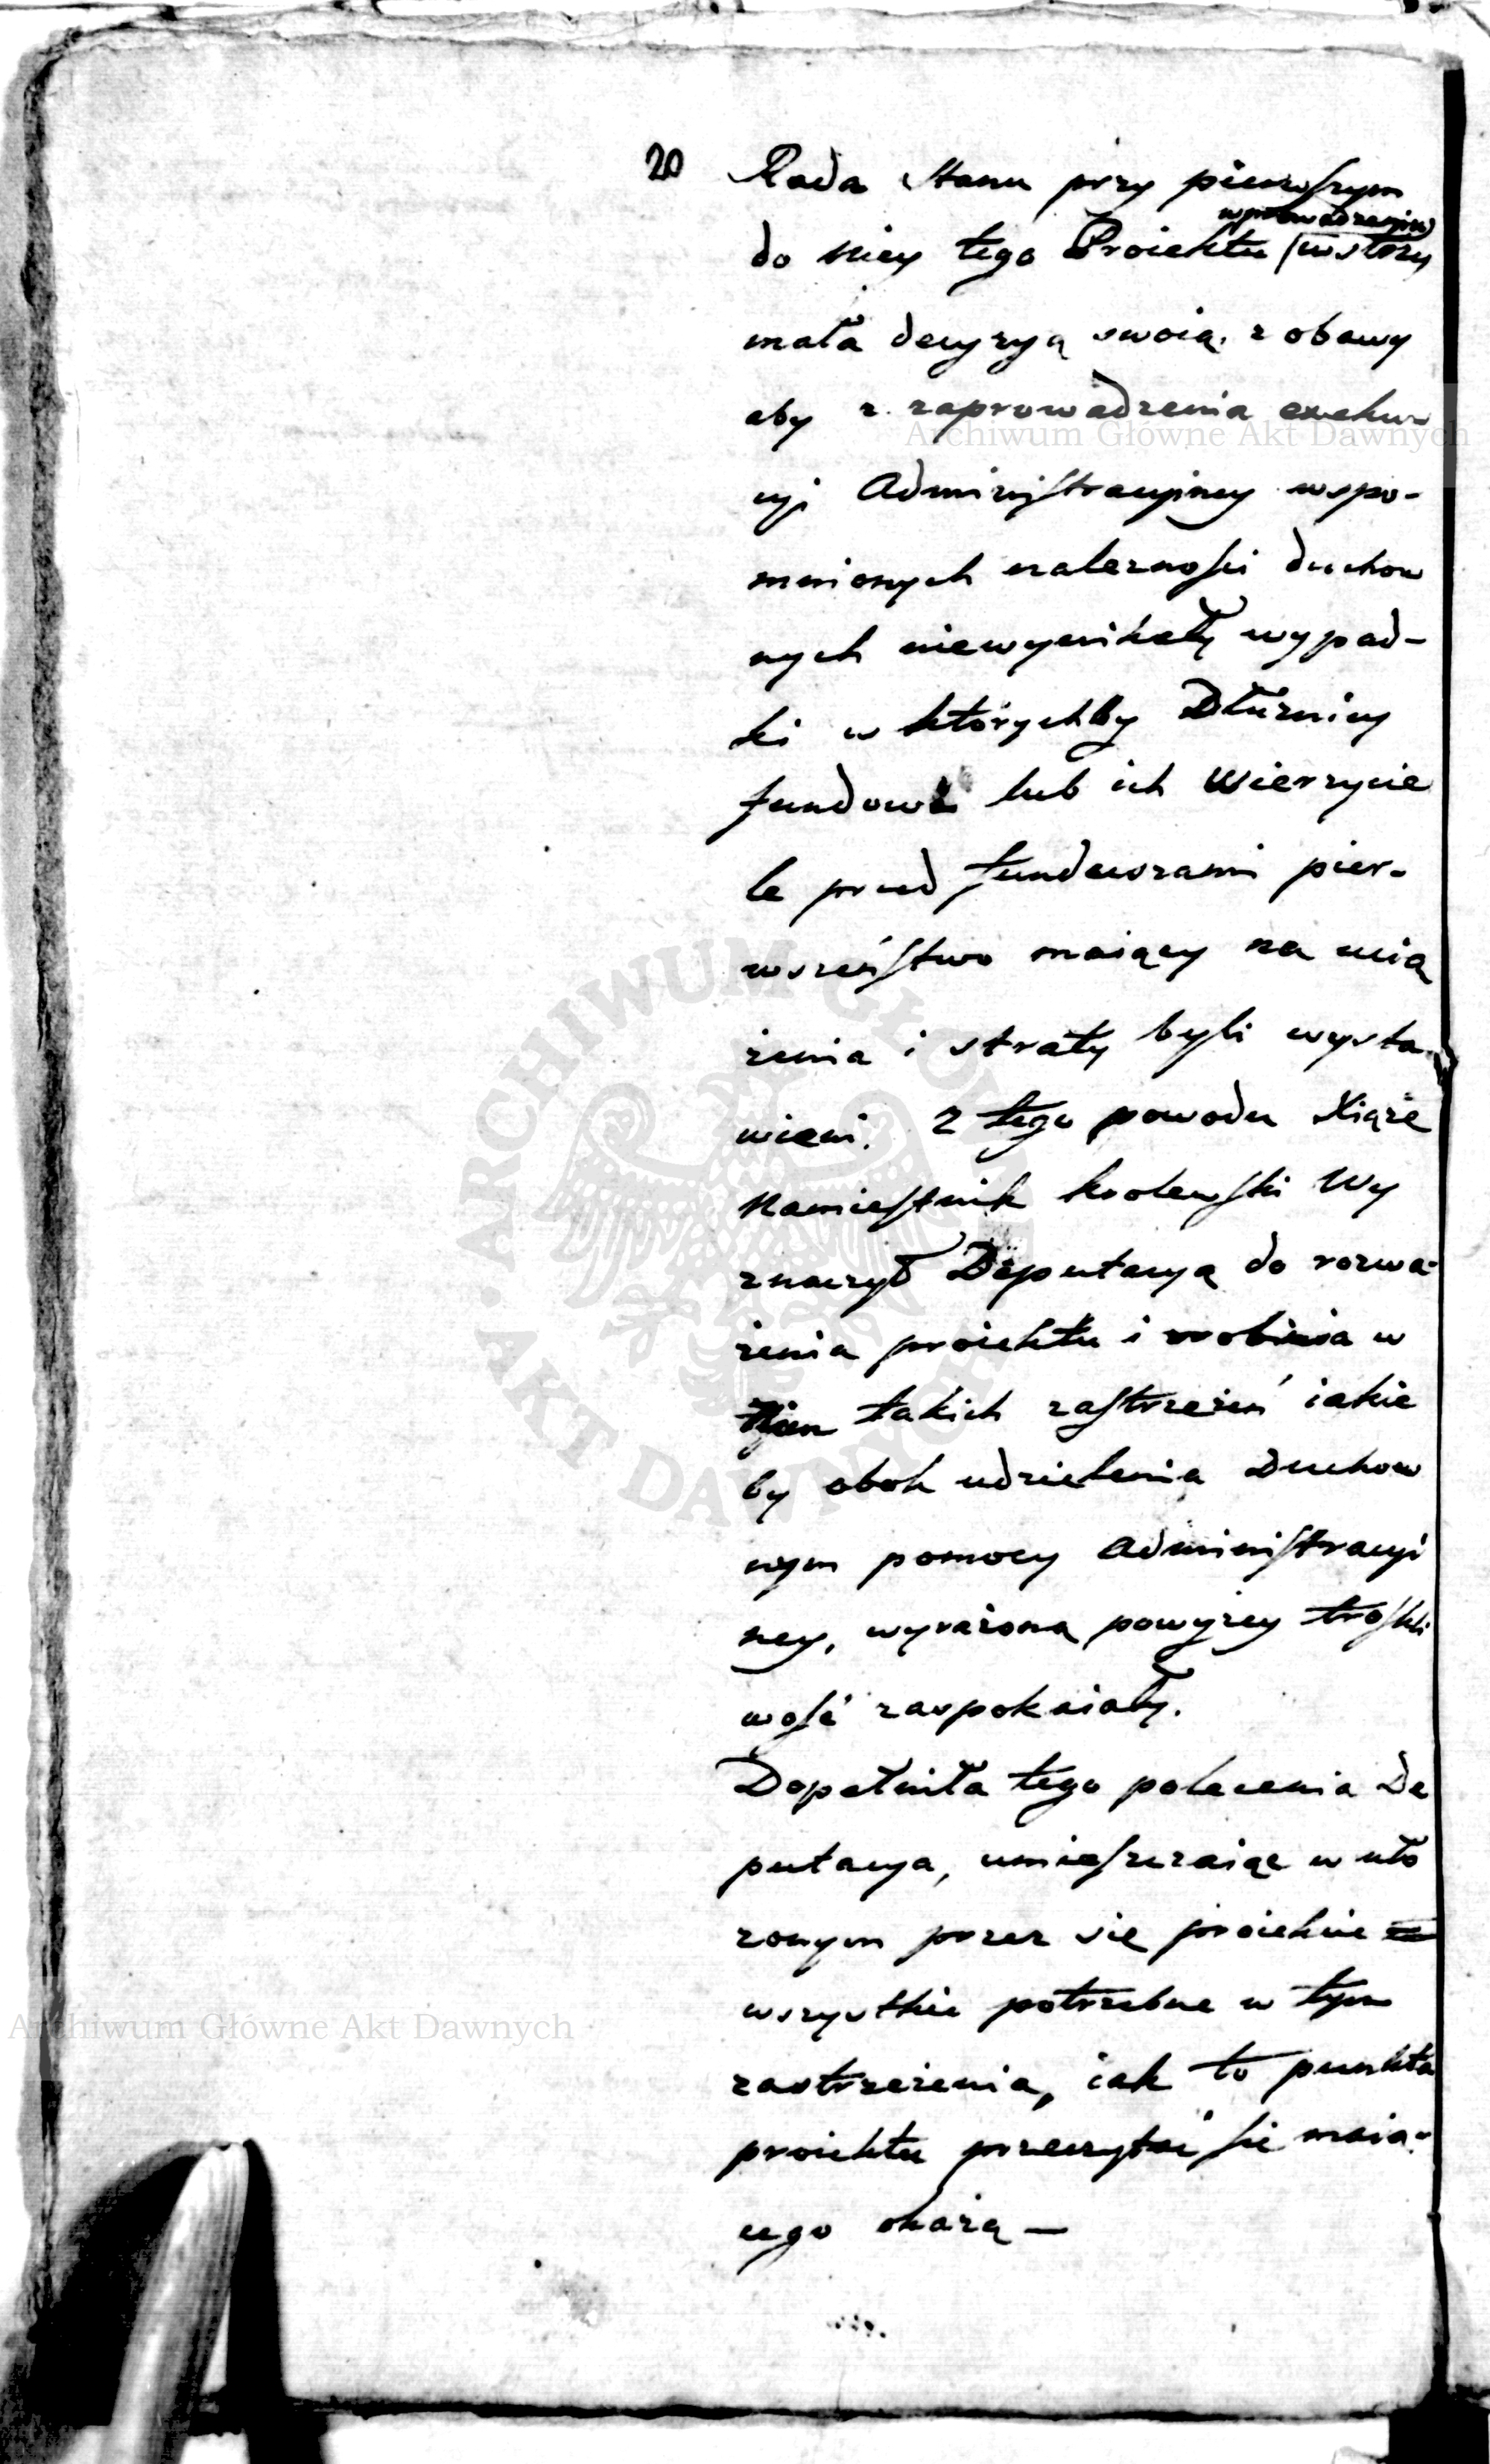 20
Rada Stanu przy pierwszym
wprowadzeniu
do niey tego Proiektu wstrzy
mała decyzyą swoią, z obawy
aby z zaprowadzenia exeku-
cyi Administracyiney wspo-
mnionych należności duchow
nych niewynikały wypad-
ki w którychby Dłużnicy
funduszu lub ich Wierzycie
le przed funduszami pier-
wszeństwo maiący na ucią
żenia i straty byli wysta-
wieni. Z tego powodu Xiąże
Namiestnik krolewski Wy
znaczył Deputacyą do rozwa-
żenia proiektu i zrobienia w
tym takich zastrzeżeń iakie
by obok udzielenia Duchow
nym pomocy Administracyi
ney, wyrażoną powyżey troskli
wość zaspokaiały.
Dopełniła tego polecenia De
putacya, umieszczaiąc w uło
żonym przez się proiekcie
wszystkie potrzebne w tym
zastrzeżenia, iak to punkta
proiektu przeczytać się maią-
cego okażą —
Archiwum Główne Akt Dawnych
ARCHIWUM GŁÓWNE AKT DAWNYCH
Archiwum Główne Akt Dawnych